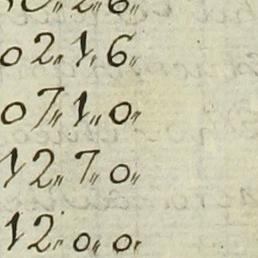 2〃6〃
02〃1〃6〃
07〃1〃0〃
12〃7〃0〃
12〃0〃0〃